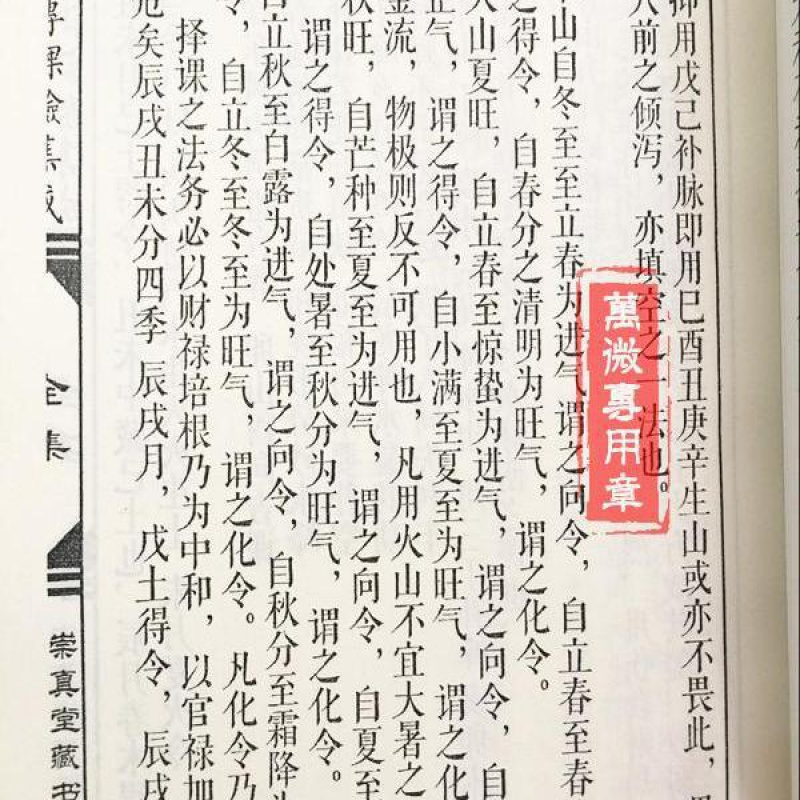 抑用戊己补脉即用巳酉丑庚辛生山或亦不畏此，
前之倾泻，亦填空之一法也。
山自冬至至立春为进气谓之向令，自立春至春
之得令，自春分之清明为旺气，谓之化令。
火山夏旺，自立春至惊蛰为进气，谓之向令，自
正气，谓之得令，自小满至夏至为旺气，谓之化
金流，物极则反不可用也，凡用火山不宜大暑之
秋旺，自芒种至夏至为进气，谓之向令，自夏至
谓之得令，自处暑至秋分为旺气，谓之化令。
自立秋至白露为进气，谓之向令，自秋分至霜降为
令，自立冬至冬至为旺气，谓之化令。凡化令乃
择课之法务必以财禄培根乃为中和，以官禄加
危矣辰戌丑未分四季 辰戌月，戊土得令，辰戌
课验集成
全集
崇真堂藏书
萬微專用章